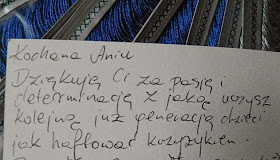 Kochana Aniu
Dziękuję Ci za pasję i
determinację z jaką uczysz
kolejną już generację dzieci
jak haftować krzyżykiem.